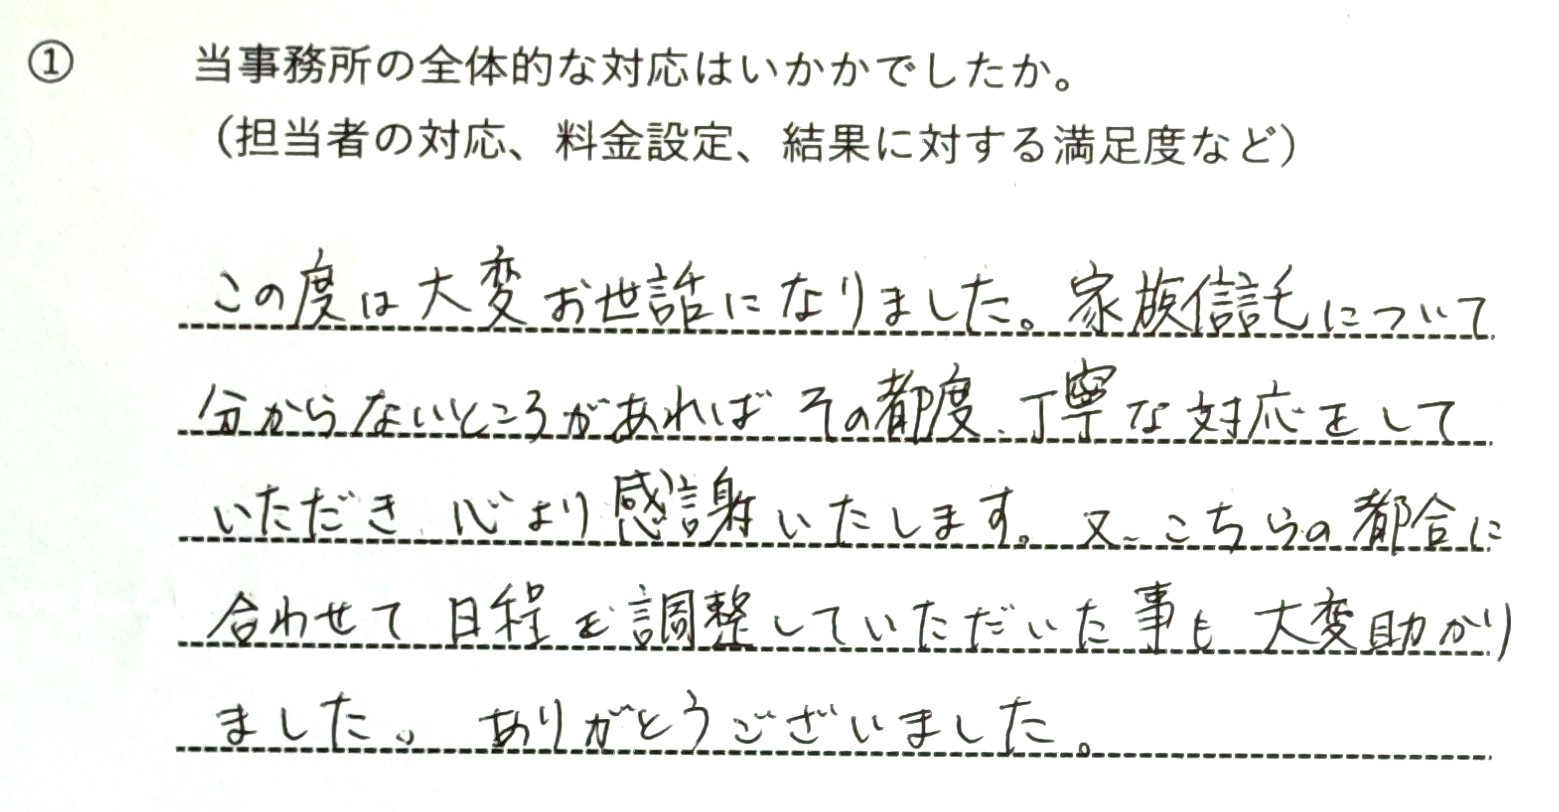 ① 当事務所の全体的な対応はいかかでしたか。
（担当者の対応、料金設定、結果に対する満足度など）
この度は大変お世話になりました。家族信託について
分からないところがあればその都度、丁寧な対応をして
いただき、心より感謝いたします。又、こちらの都合に
合わせて日程を調整していただいた事も大変助かり
ました。ありがとうございました。